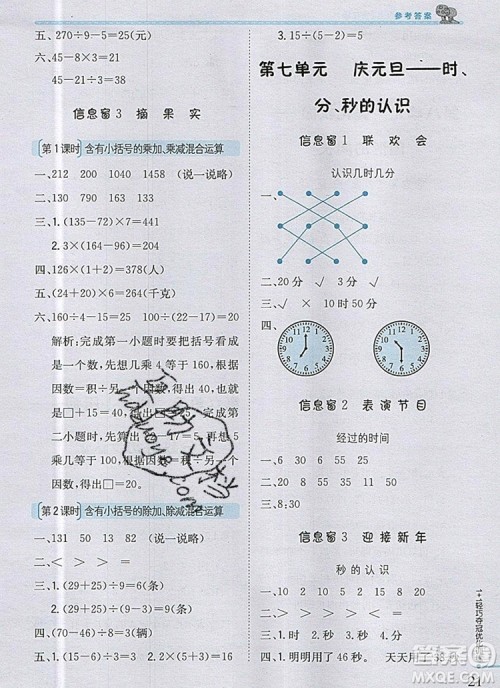 参考答案
五、270÷9-5=25(元)
45-27=18
信息窗3 摘果实
第1课时 含有小括号的乘加、乘减混合运算
一、212 200 1040 1458 (说一说略)
二、130 790 163 133
三、1.(135-72)×7=441
2.3×(164-96)=204
四、126×(1+2)=378(人)
五、(24+17)×6=246(千克)
六、160÷4-15=25 100÷(22-17)=20
解析:完成第一小题时要把括号看成是一个数,先想几乘4等于160,根据因数=积÷另一个因数,得出
是□+15=40,得出□=25。完成第
二小题时,先算出22-17=5,再想5
乘几等于100,根据因数=积÷另一个因数,得出□=20。
第2课时 含有小括号的除加、除减混合运算
一、131 50 13 82 (说一说略)
二、< > > = >
三、1.(29+25)÷9=6(束)
2.(29+25)÷6=9(束)
3.15÷(2+1)=5
第七单元 庆元旦——时、
分、秒的认识
信息窗1 联欢会
认识几时几分
一、
二、20分 √ 3分 √
三、√ × 10时50分
四、
信息窗2 表演节目
经过的时间
一、6 30 8 55 25
二、> < > >
三、8;30
信息窗3 迎接新年
秒的认识
一、1 2 10 15
二、> = < > > =
四、1.明明用了46秒。 天天用了38秒
1+1轻巧夺冠优化训练
21